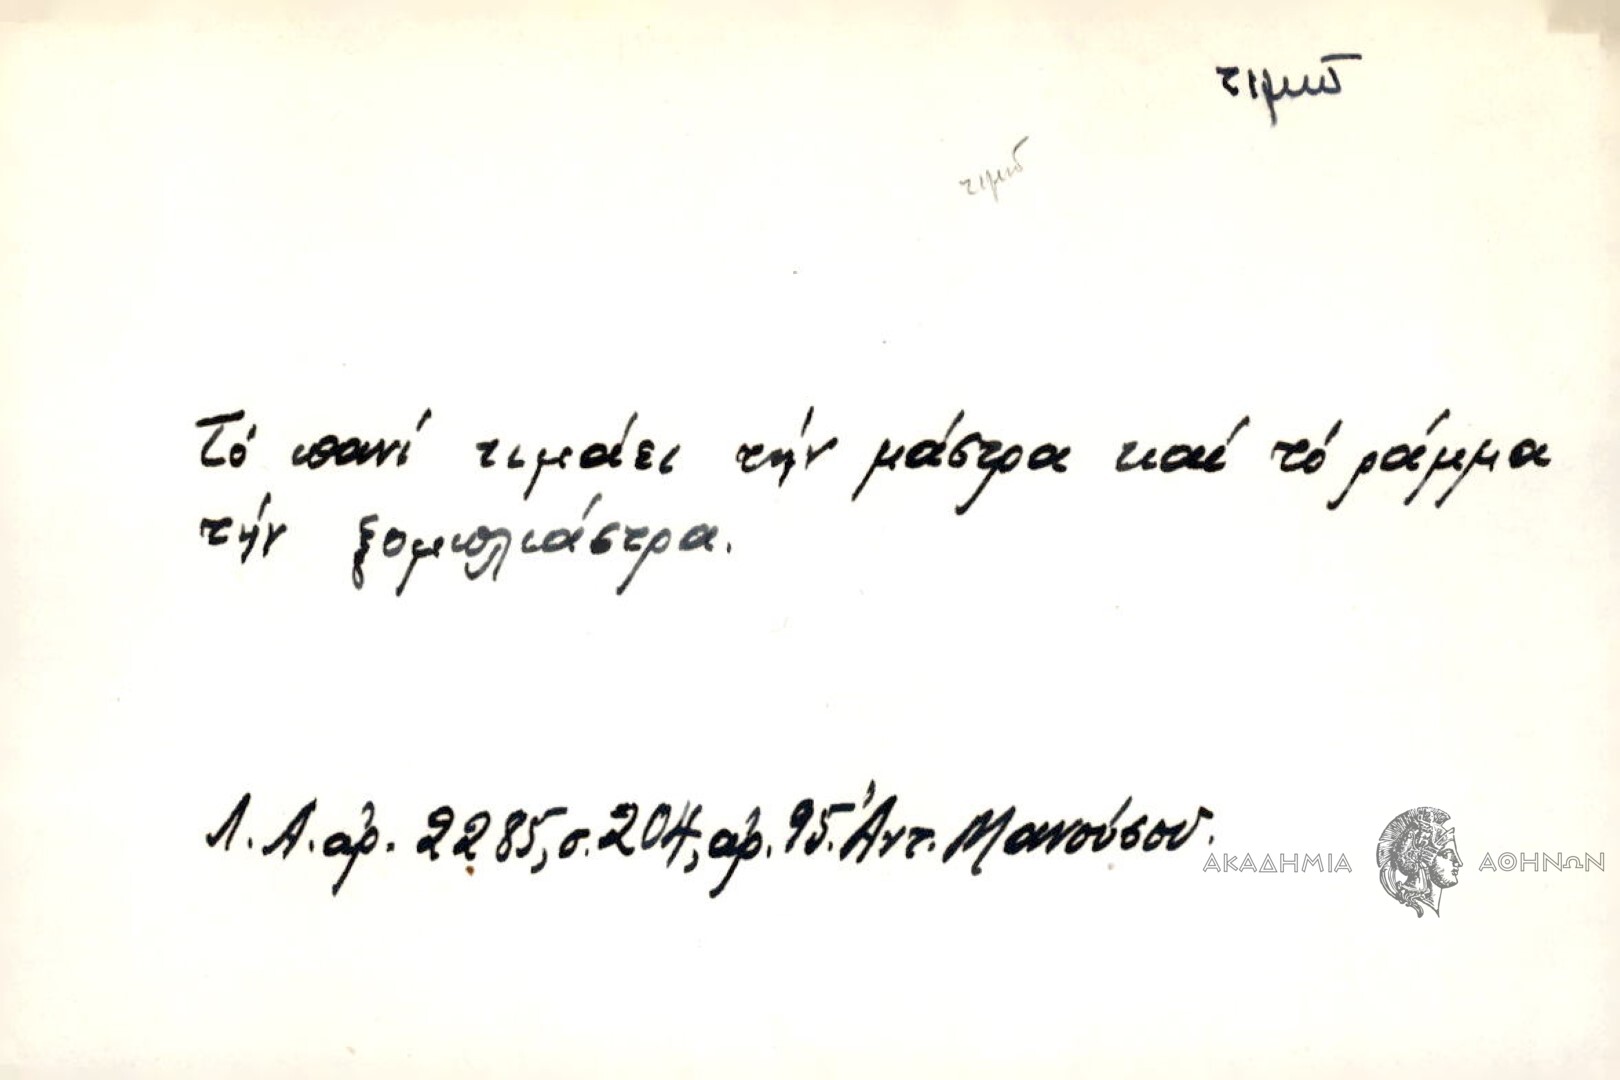 τιμῶ
τιμῶ
Τό πανί τιμάει τήν μάστρα καί τό ράμμα
τήν ξομπλιάστρα.
Λ.Α.ἀρ. 2285, σ. 204, ἀρ. 95. Ἀντ. Μανούσου.
ΑΚΑΔΗΜΙΑ ΑΘΗΝΩΝ